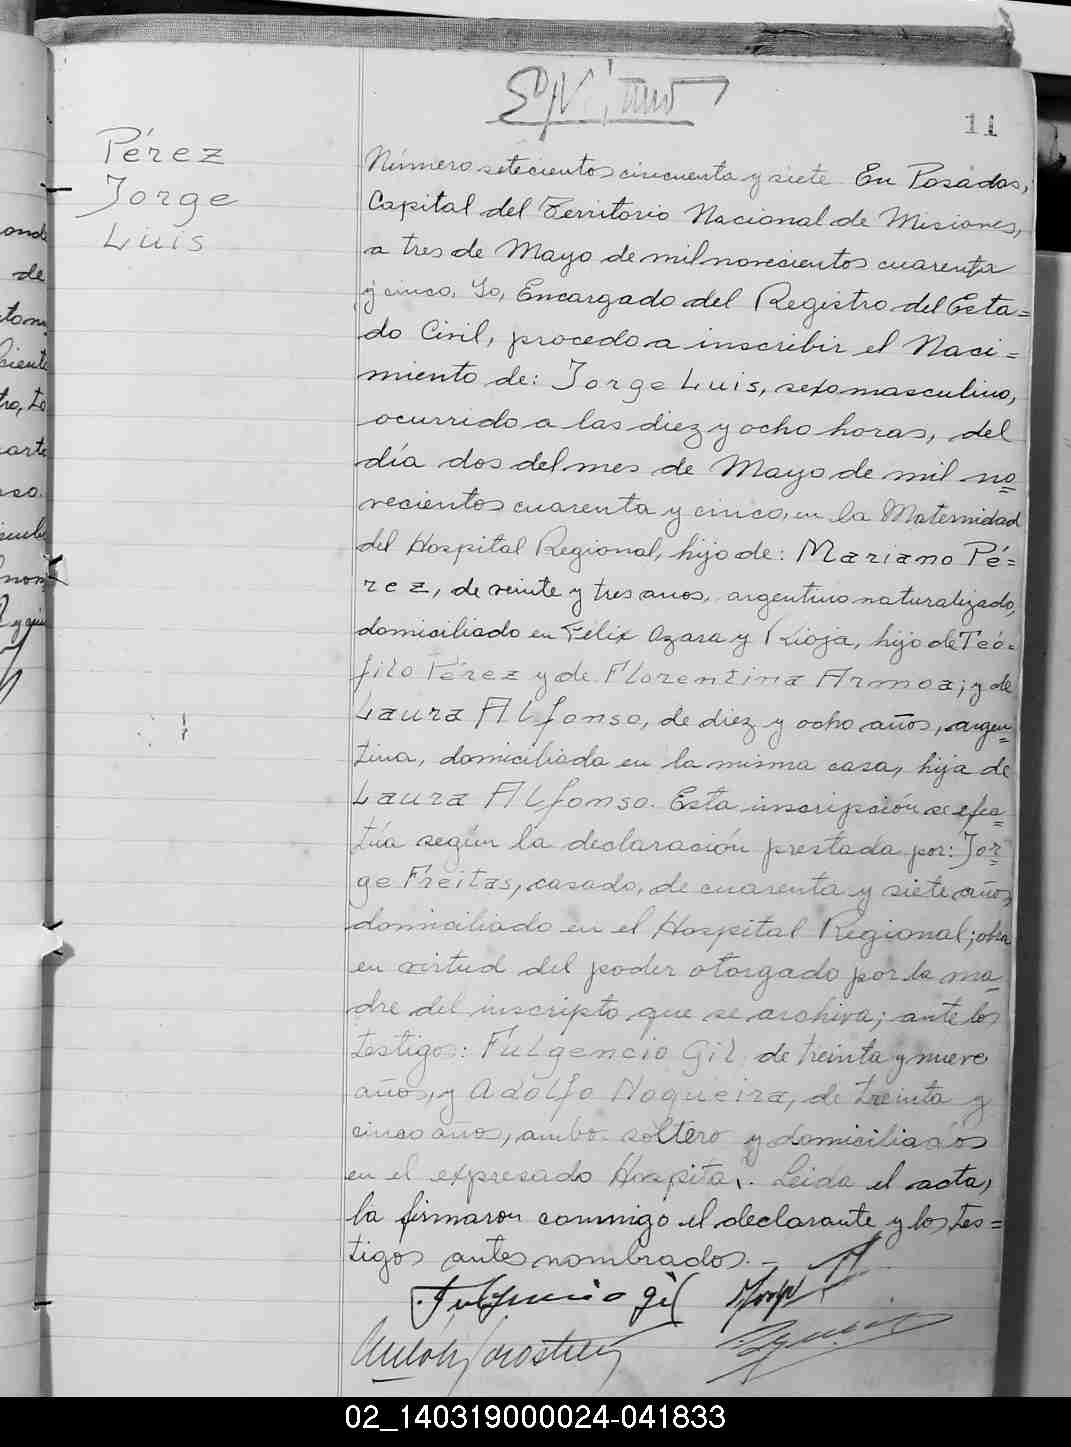 11
Pérez
Jorge
Luis
Número setecientos cincuenta y siete En Posadas,
Capital del Territorio Nacional de Misiones,
a tres de Mayo de mil novecientos cuarenta
y cinco, Yo, Encargado del Registro del Esta=
do Civil, procedo a inscribir el Naci=
miento de: Jorge Luis, sexo masculino,
ocurrido a las diez y ocho horas, del
día dos del mes de Mayo de mil no=
vecientos cuarenta y cinco, en la Maternidad
del Hospital Regional, hijo de: Mariano Pé=
rez, de veinte y tres anos, argentino naturalizado,
domiciliado en Félix Azara y Rioja, hijo de Teó=
filo Pérez y de Florentina Armoa; y de
Laura Alfonso, de diez y ocho años, argen=
tina, domiciliada en la misma casa, hija de
Laura Alfonso. Esta inscripción se efec=
túa según la declaración prestada por: Jor=
ge Freitas, casado, de cuarenta y siete años,
domiciliado en el Hospital Regional; obra
en virtud del poder otorgado por la ma=
dre del inscripto que se archiva; ante los
testigos: Fulgencio Gil, de treinta y nueve
años, y Adolfo Noqueira, de treinta y
cinco años, ambos soltero y domiciliados
en el expresado Hospital. Leida el acta,
la firmaron conmigo el declarante y los tes=
tigos antes nombrados.-
Fulgencio Gil
onde
de
arte
02_140319000024-041833